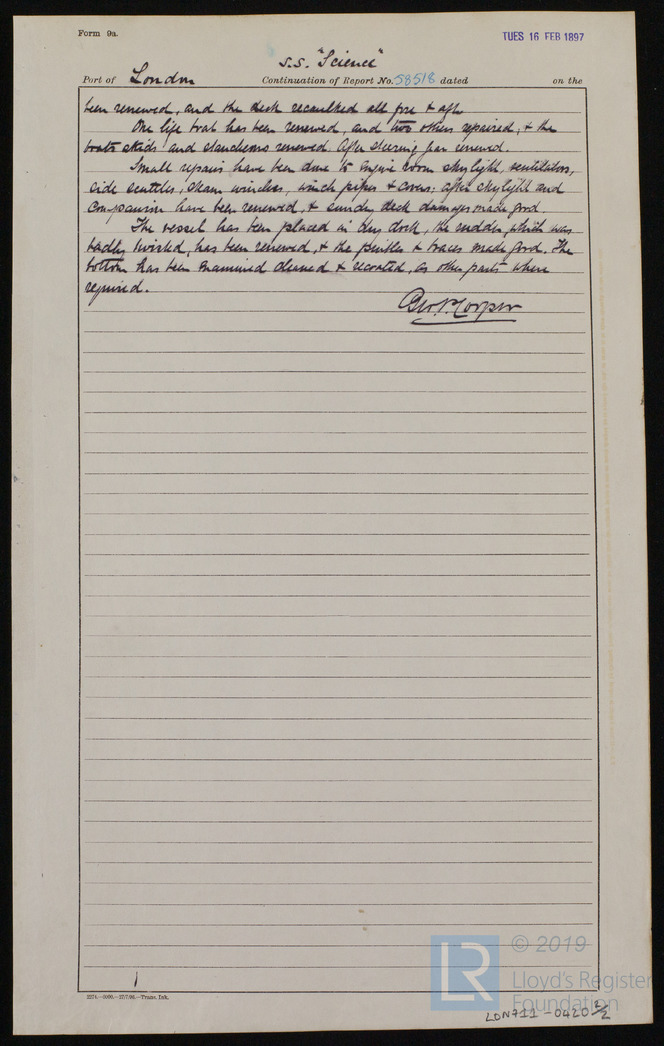 Form 9a.
TUES 16 FEB 1897
S.S. "Science"
Port of London Continuation of Report No. 58518 dated on the
been renewed, and the deck recaulked all fore & aft.
One life boat has been renewed, and two others repaired, & the
boats skids and stanchions renewed. After steering gear renewed.
Small repairs have been done to Engine room skylight, ventilators,
side scuttles, steam windlass, winch pipes & covers; after skylight and
Companion have been renewed, & sundry deck damages made good.
The vessel has been placed in dry dock, the rudder, which was
badly twisted, has been renewed, & the pintles & braces made good. The
bottom has been examined cleaned & recoated, as other parts where
required.
Geo. P. Cooper
2274.—5000.—17/7/96.—Trans. Ink.
LR
© 2019
Lloyd's Register
Foundation
LON711-0420 2/2